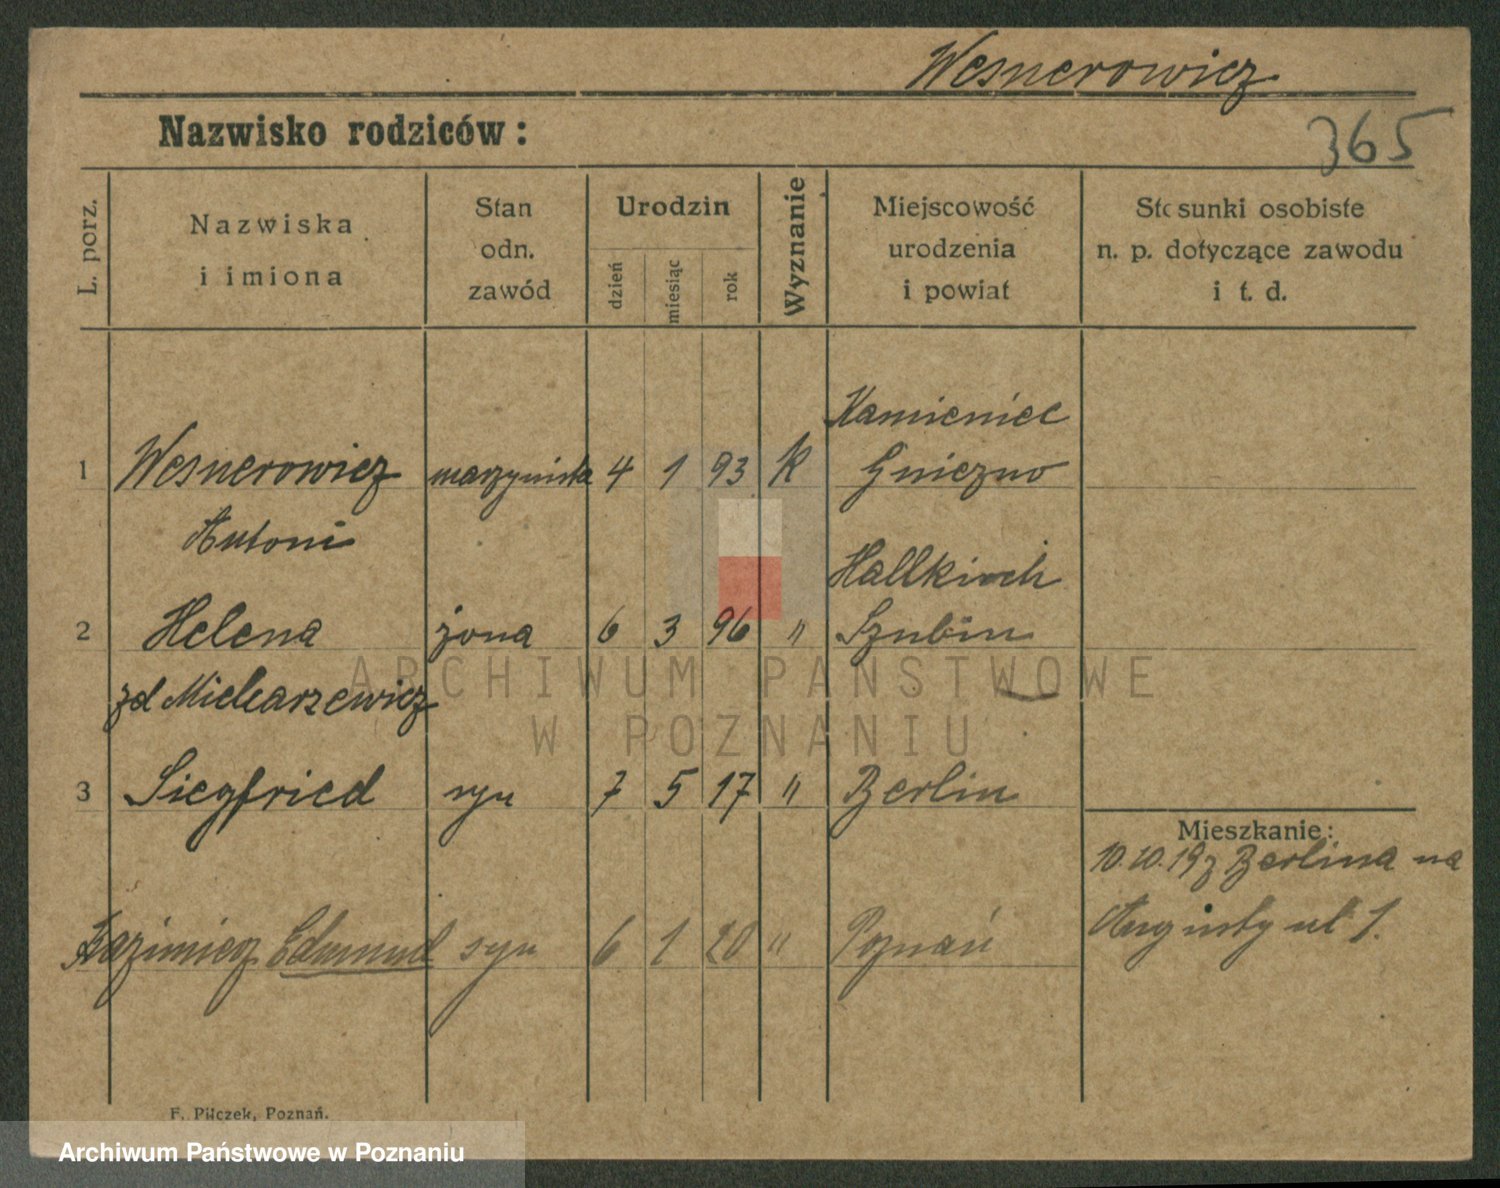 Wesnerowicz
Nazwisko rodziców:
365
L. porz.
Nazwiska
i imiona
Stan
odn.
zawód
Urodzin
dzień
miesiąc
rok
Wyznanie
Miejscowość
urodzenia
i powiat
Stosunki osobiste
n. p. dotyczące zawodu
i t. d.
Kamieniec
1 Wesnerowicz maszynista 4 1 93 K Gniezno
Antoni
Hallkirch
2 Helena żona 6 3 96 " Szubin
zd
3 Siegfried syn 7 5 17 " Berlin
Mieszkanie:
10.10.19 z Berlina na
ul 1.
Kazimierz Edmund syn 6 1 20 " Poznań
F. Pilczek, Poznań.
ARCHIWUM PAŃSTWOWE
W POZNANIU
Archiwum Państwowe w Poznaniu